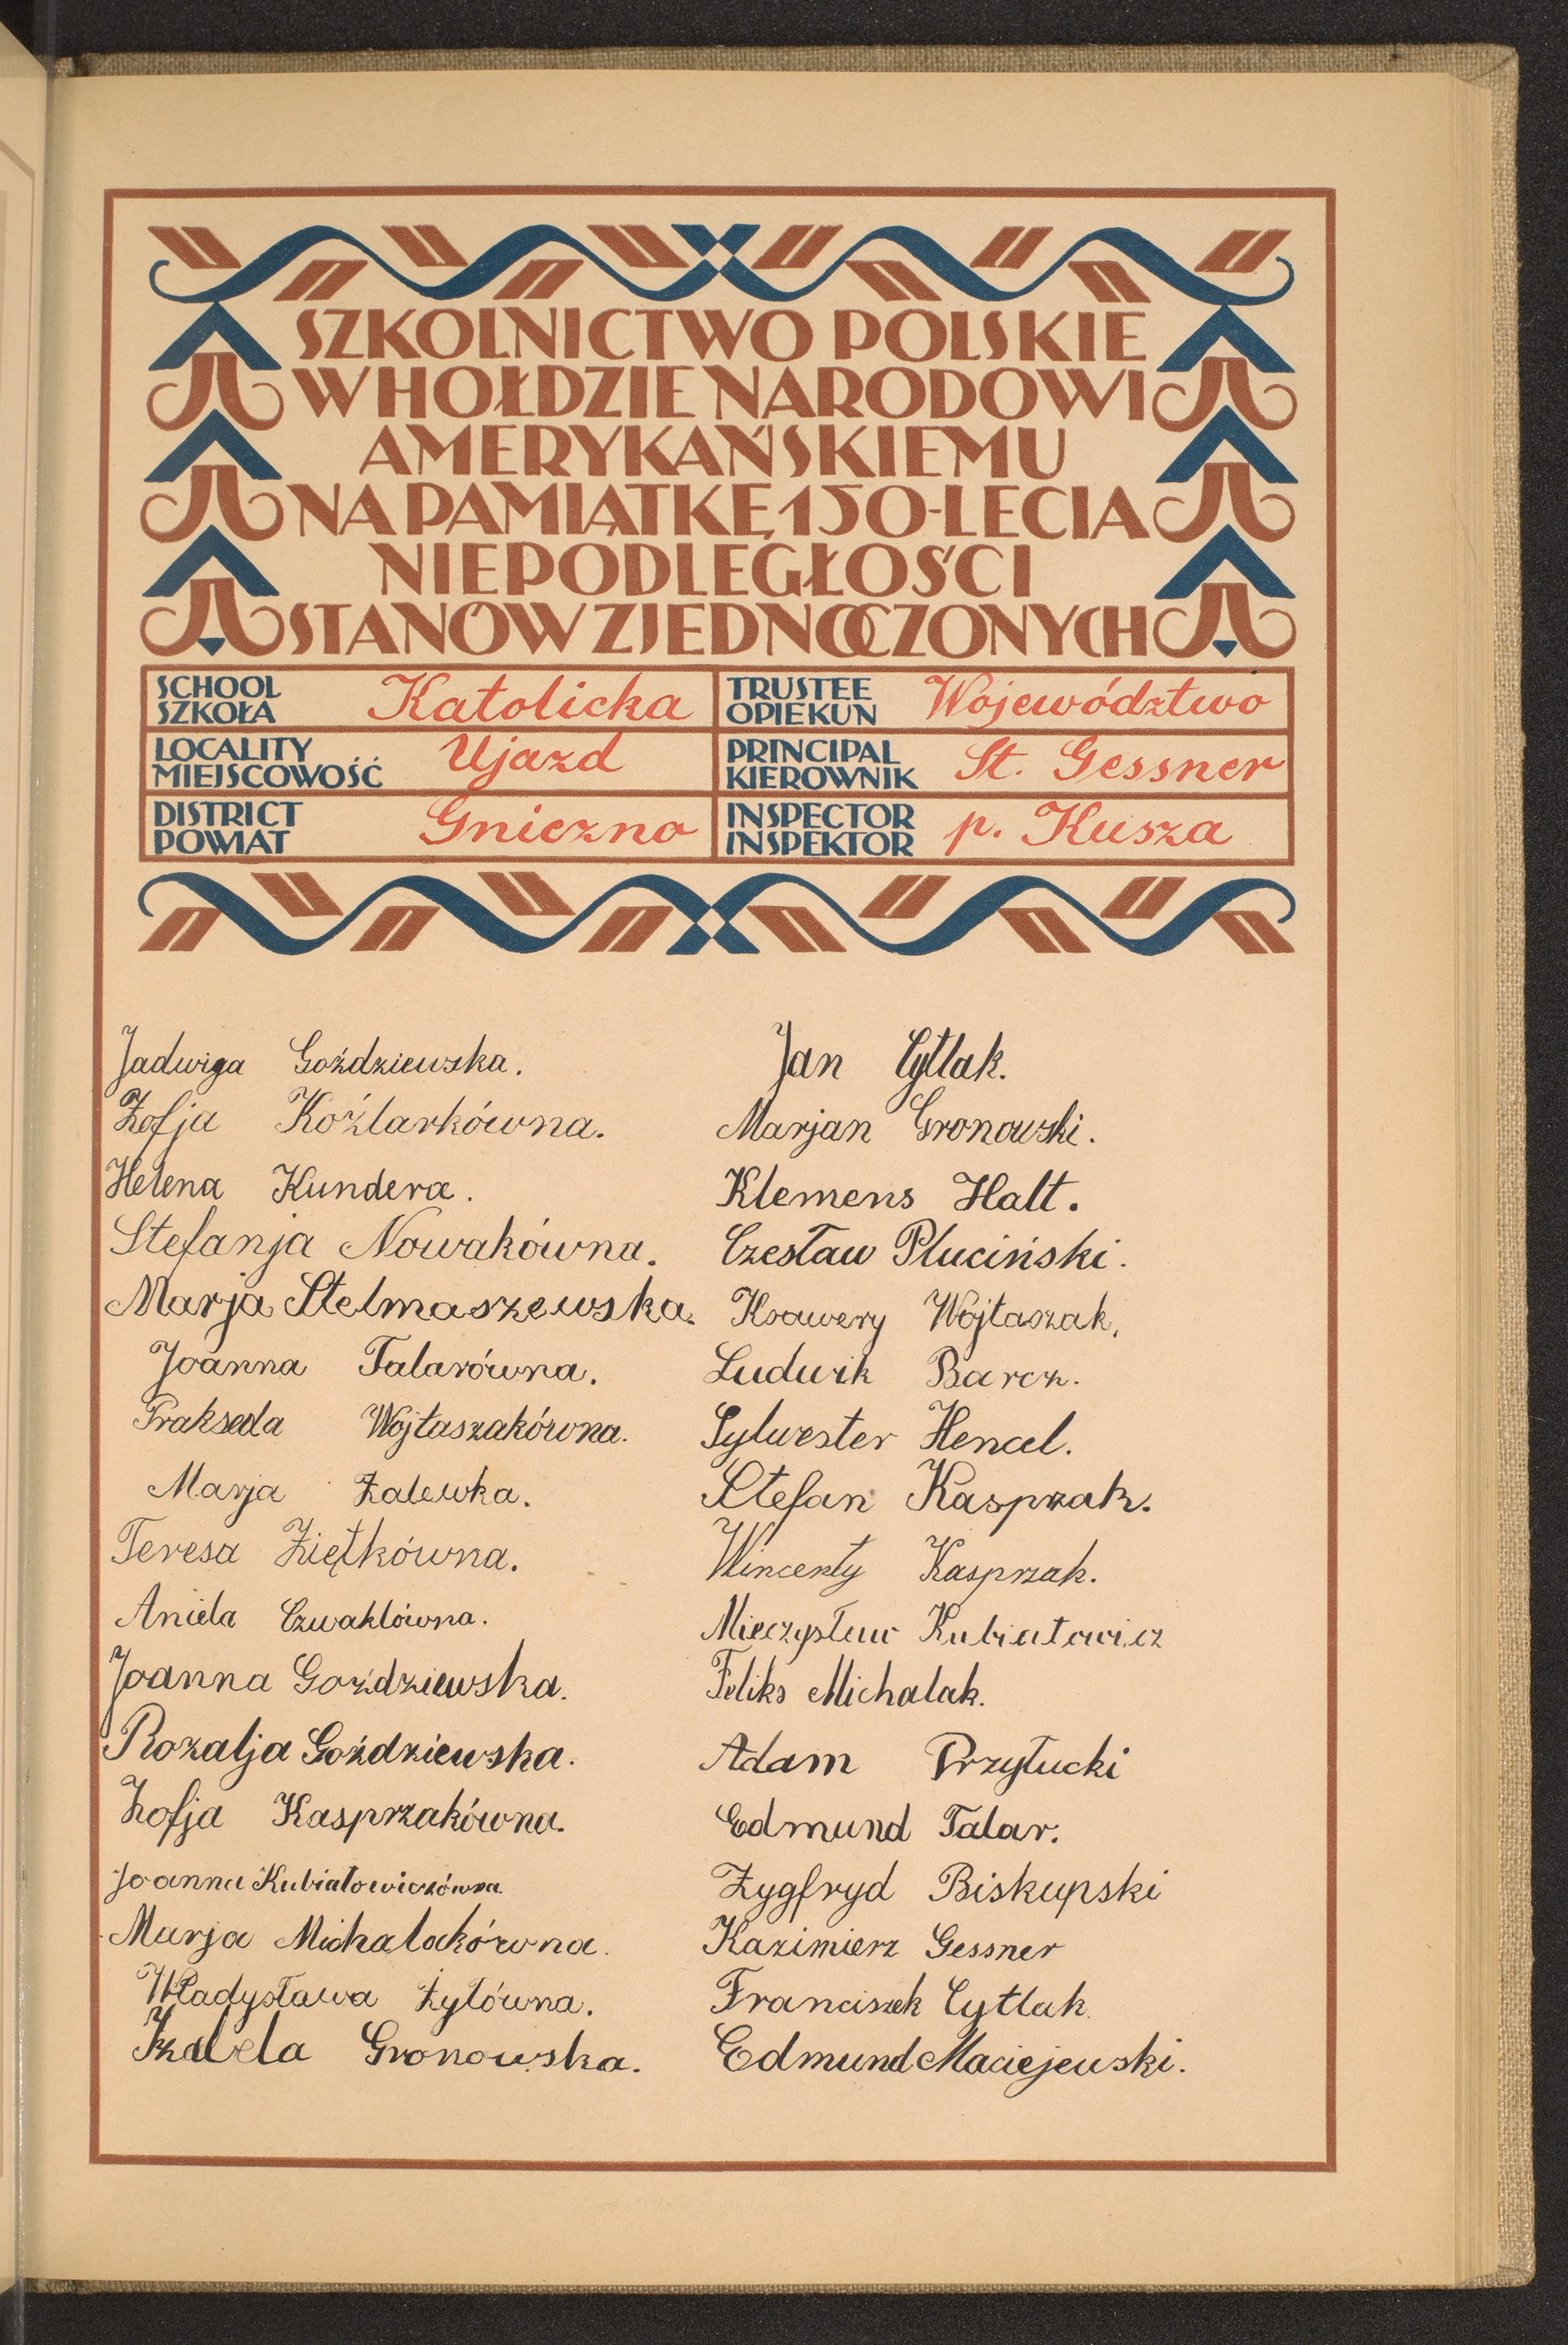 SZKOLNICTWO POLSKIE
W HOŁDZIE NARODOWI
AMERYKAŃSKIEMU
NA PAMIĄTKĘ 150-LECIA
NIEPODLEGŁOŚCI
STANÓW ZJEDNOCZONYCH
SCHOOL
SZKOŁA
Katolicka
TRUSTEE
OPIEKUN
Województwo
LOCALITY
MIEJSCOWOŚĆ
Ujazd
PRINCIPAL
KIEROWNIK
St. Gessner
DISTRICT
POWIAT
Gniezno
INSPECTOR
INSPEKTOR
p. Kusza
Jadwiga Goździewska.
Zofja Koźlarkówna.
Helena Kundera.
Stefanja Nowakówna.
Marja Stelmaszewska.
Joanna Talarówna.
Prakseda Wojtaszakówna.
Marja Zalewka.
Teresa Ziętkówna.
Aniela Czwaklówna.
Joanna Goździewska.
Rozalja Goździewska.
Zofja Kasprzakówna.
Joanna Kubiatowiczówna.
Marja Michalakówna.
Władysława Żytówna.
Izabela Gronowska.
Jan Cytlak.
Marjan Gronowski.
Klemens Halt.
Czesław Pluciński.
Ksawery Wojtaszak.
Ludwik Barcz.
Sylwester Hencel.
Stefan Kasprzak.
Wincenty Kasprzak.
Mieczysław Kubiatowicz
Feliks Michalak.
Adam Przyłucki
Edmund Talar.
Zygfryd Biskupski
Kazimierz Gessner
Franciszek Cytlak
Edmund Maciejewski.